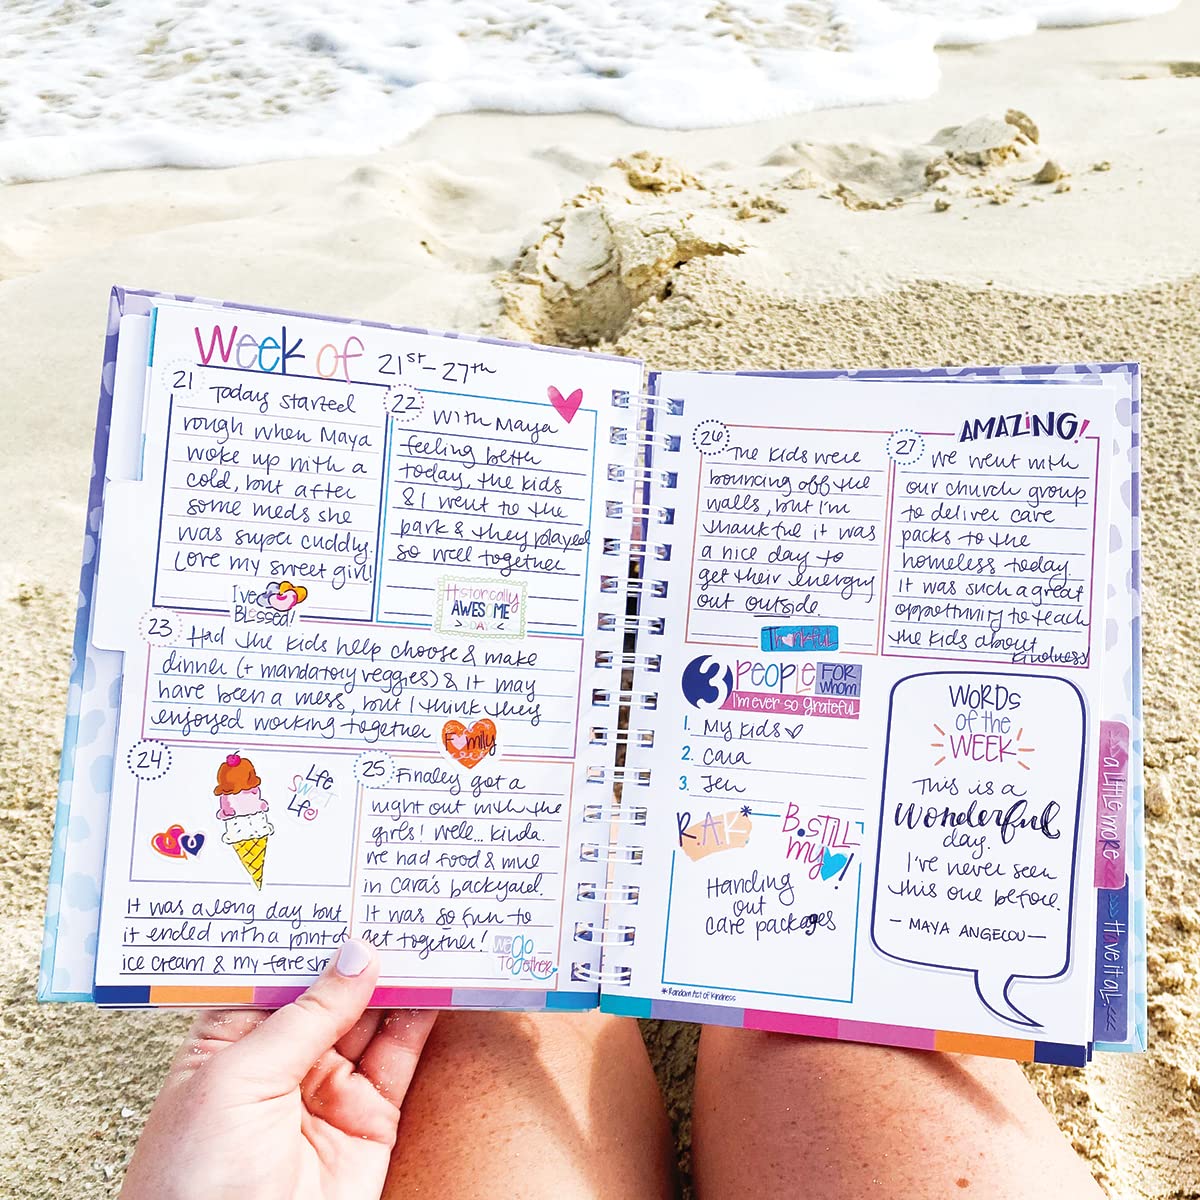 Week of 21st-27th
21
Today started
rough when Maya
woke up with a
cold, but after
some meds she
was super cuddly.
Love my sweet girl!
I've
Blessed!
22
With Maya
feeling better
today, the kids
& I went to the
park & they played
so well together
Historically
AWESOME
DAY
23
Had the kids help choose & make
dinner (+ mandatory veggies) & it may
have been a mess, but I think they
enjoyed working together
Family
24
Life
SWEET
Life
It was a long day but
it ended with a pint of
ice cream & my fave sh
25
Finaley got a
night out with the
girls! Well... kinda.
We had food & wine
in Cara's backyard.
It was so fun to
get together!
we go
TOgether
26
The kids were
bouncing off the
walls, but I'm
thankful it was
a nice day to
get their energy
out outside
Thankful
AMAZiNG!
27
We went with
our church group
to deliver care
packs to the
homeless today
It was such a great
opportunity to teach
the kids about
kindness
3 PEOPLE FOR whom
I'm ever so grateful
1. My kids
2. Cara
3. Jen
R.A.K*
B.STILL
my !
Handing
out
care packages
*Random Act of Kindness
WORDS
of the
WEEK
This is a
Wonderful
day.
I've never seen
this one before.
— MAYA ANGELOU —
>>> a Little more <<<
>>> Have it all <<<